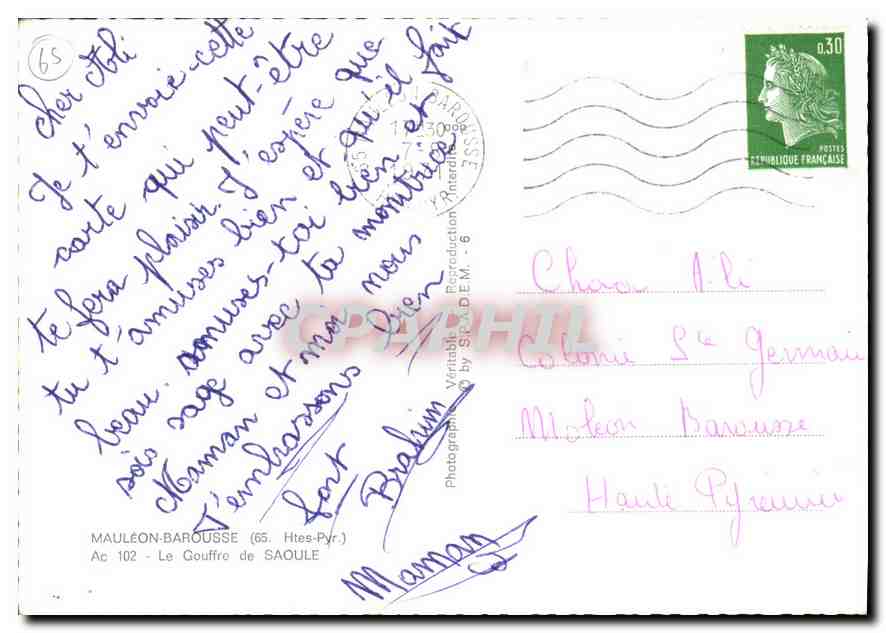 65
cher Ali
Je t'envoie cette
carte qui peut-être
te fera plaisir. J'espère que
tu t'amuses bien et qu'il fait
beau. amuses-toi bien et
sois sage avec ta montrice
Maman et moi nous
t'embrassons bien
fort
Brahim
Maman
MAULÉON-BAROUSSE (65. Htes-Pyr.)
Ac 102 - Le Gouffre de SAOULE
Photographie Véritable Reproduction Interdite
© by S.P.A.D.E.M. - 6
BAROUSSE
0,30
POSTES
REPUBLIQUE FRANÇAISE
CPAPHIL
Ali
Colonie Ste Germain
Moleon Barousse
Haute Pyrénnées